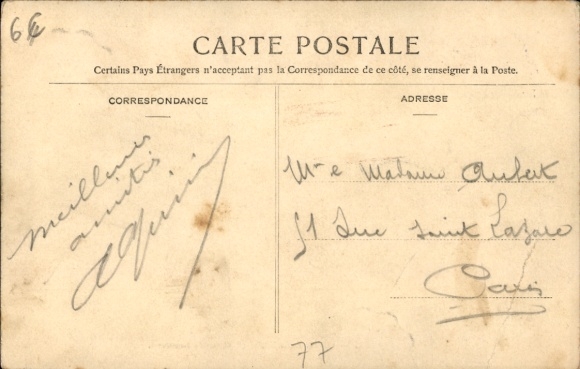 6€
CARTE POSTALE
Certains Pays Étrangers n'acceptant pas la Correspondance de ce côté, se renseigner à la Poste.
CORRESPONDANCE
Meilleures
amitiés
ADRESSE
Mr e Madame Aubert
51 Rue Saint Lazare
Paris
77